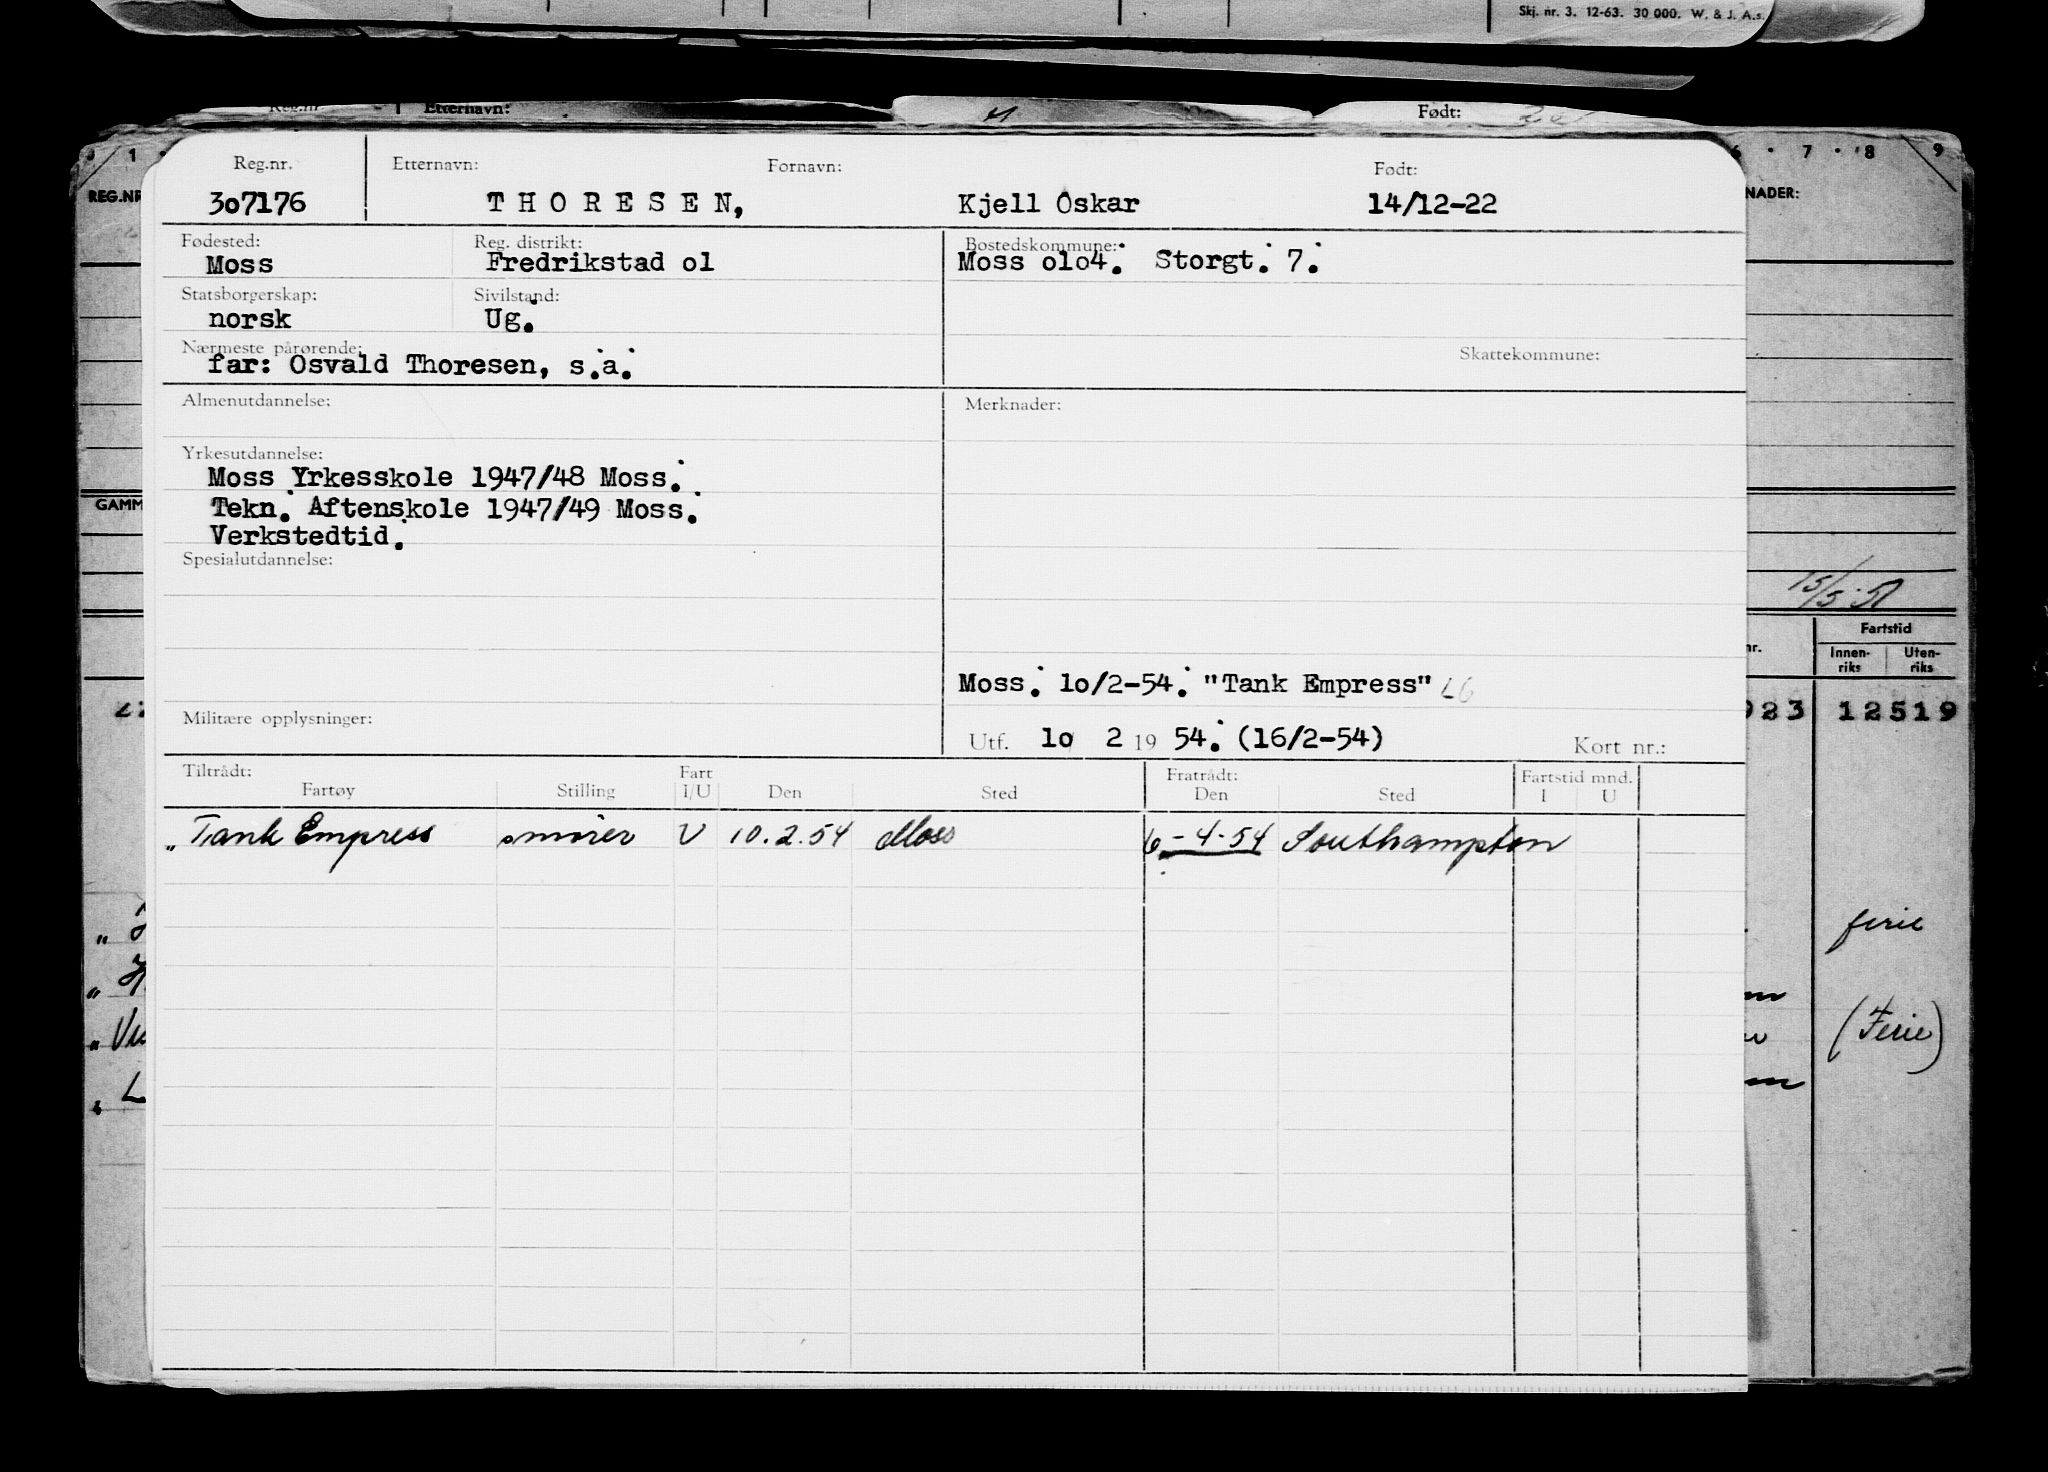 Skj. nr. 3. 12-63. 30 000. W. & J. A.s.
Reg.nr. Etternavn: Født:
1 7 8 9
REG.NR
NADER:
Reg.nr. Etternavn: Fornavn: Født:
307176 THORESEN, Kjell Oskar 14/12-22
Fødested: Reg. distrikt: Bostedskommune:
Moss Fredrikstad o1 Moss o1o4. Storgt. 7.
Statsborgerskap: Sivilstand:
norsk Ug.
Nærmeste pårørende: Skattekommune:
far: Osvald Thoresen, s.a.
Almenutdannelse: Merknader:
Yrkesutdannelse:
Moss Yrkesskole 1947/48 Moss.
GAMM
Tekn. Aftenskole 1947/49 Moss.
Verkstedtid.
Spesialutdannelse:
15/5-51
Fartstid
nr. Innen-riks Uten-riks
Moss. 1o/2-54. "Tank Empress" L6
923 12519
Militære opplysninger:
Utf. 1o 2 19 54. (16/2-54) Kort nr.:
Tiltrådt: Fart Fratrådt: Fartstid mnd.
Fartøy Stilling I/U Den Sted Den Sted I U
„Tank Empress smører U 10.2.54 Moss 6-4-54 Southampton
ferie
(Ferie)